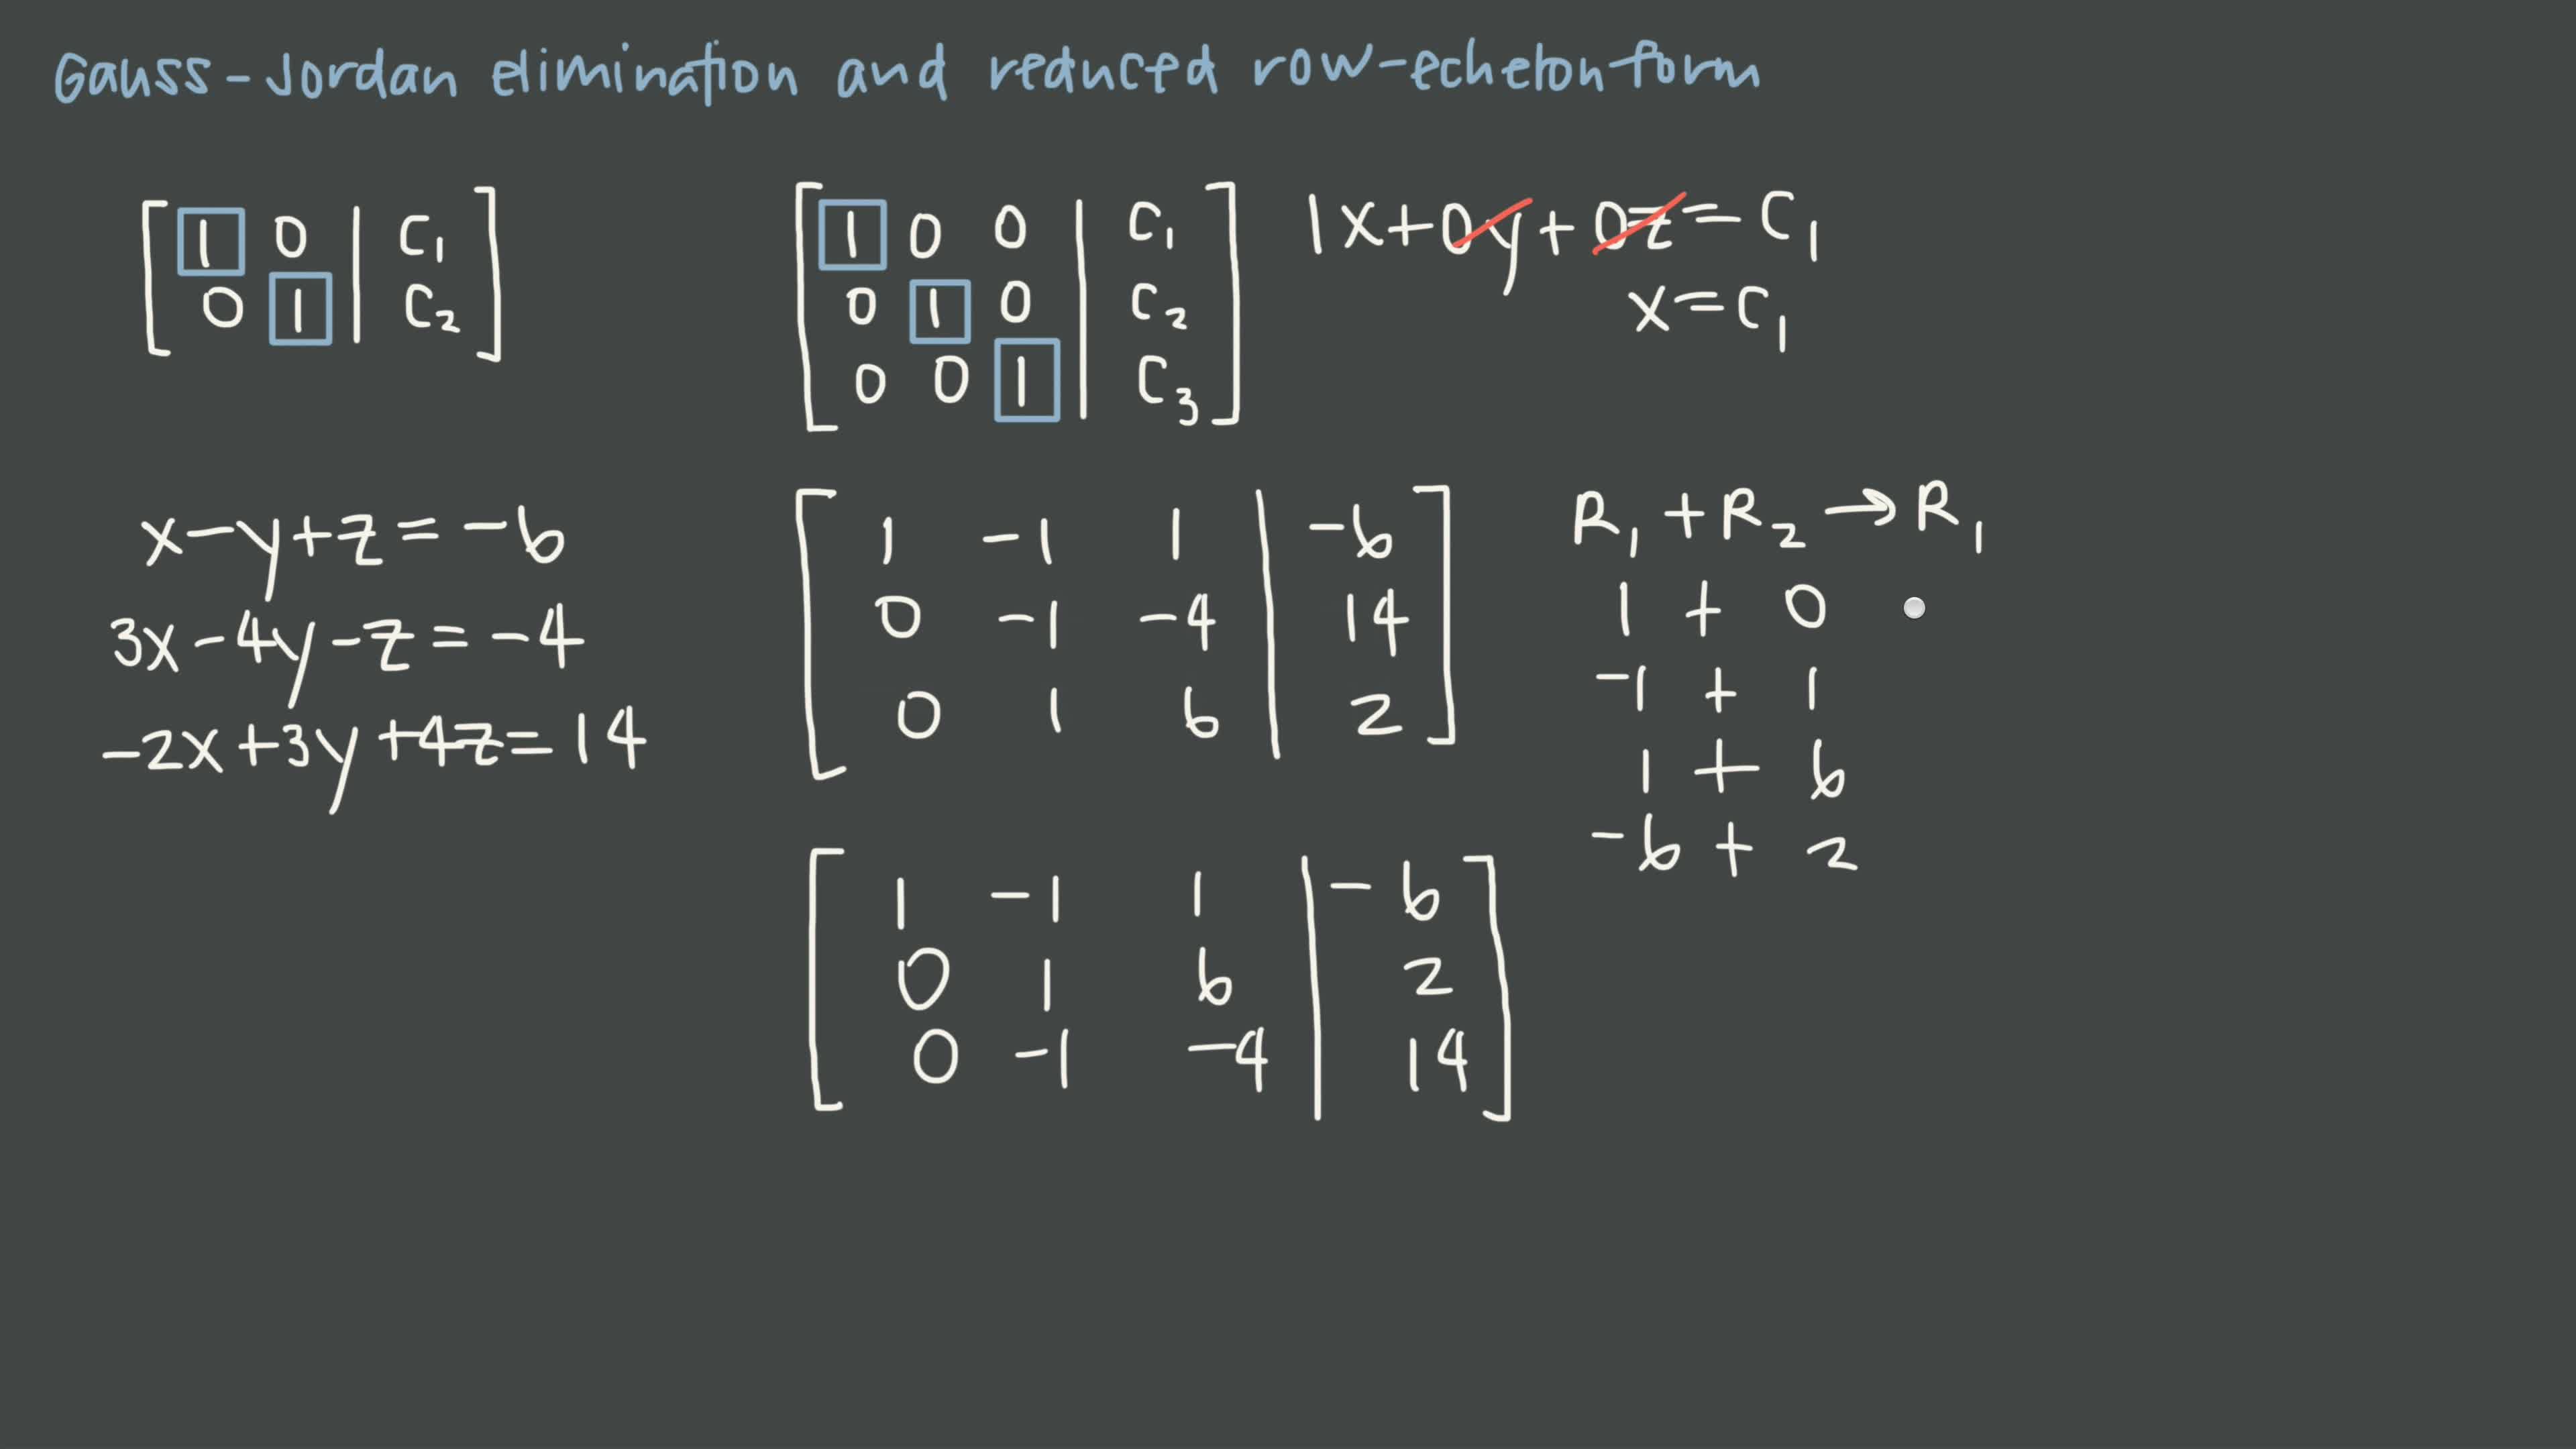 Gauss-Jordan elimination and reduced row-echelon form
[ 1 0 | C₁ ]
[ 0 1 | C₂ ]
[ 1 0 0 | C₁ ]
[ 0 1 0 | C₂ ]
[ 0 0 1 | C₃ ]
1x+0y+0z=C₁
x=C₁
x-y+z=-6
3x-4y-z=-4
-2x+3y+4z=14
[ 1 -1 1 | -6 ]
[ 0 -1 -4 | 14 ]
[ 0 1 6 | 2 ]
R₁+R₂→R₁
1 + 0
-1 + 1
1 + 6
-6 + 2
[ 1 -1 1 | -6 ]
[ 0 1 6 | 2 ]
[ 0 -1 -4 | 14 ]